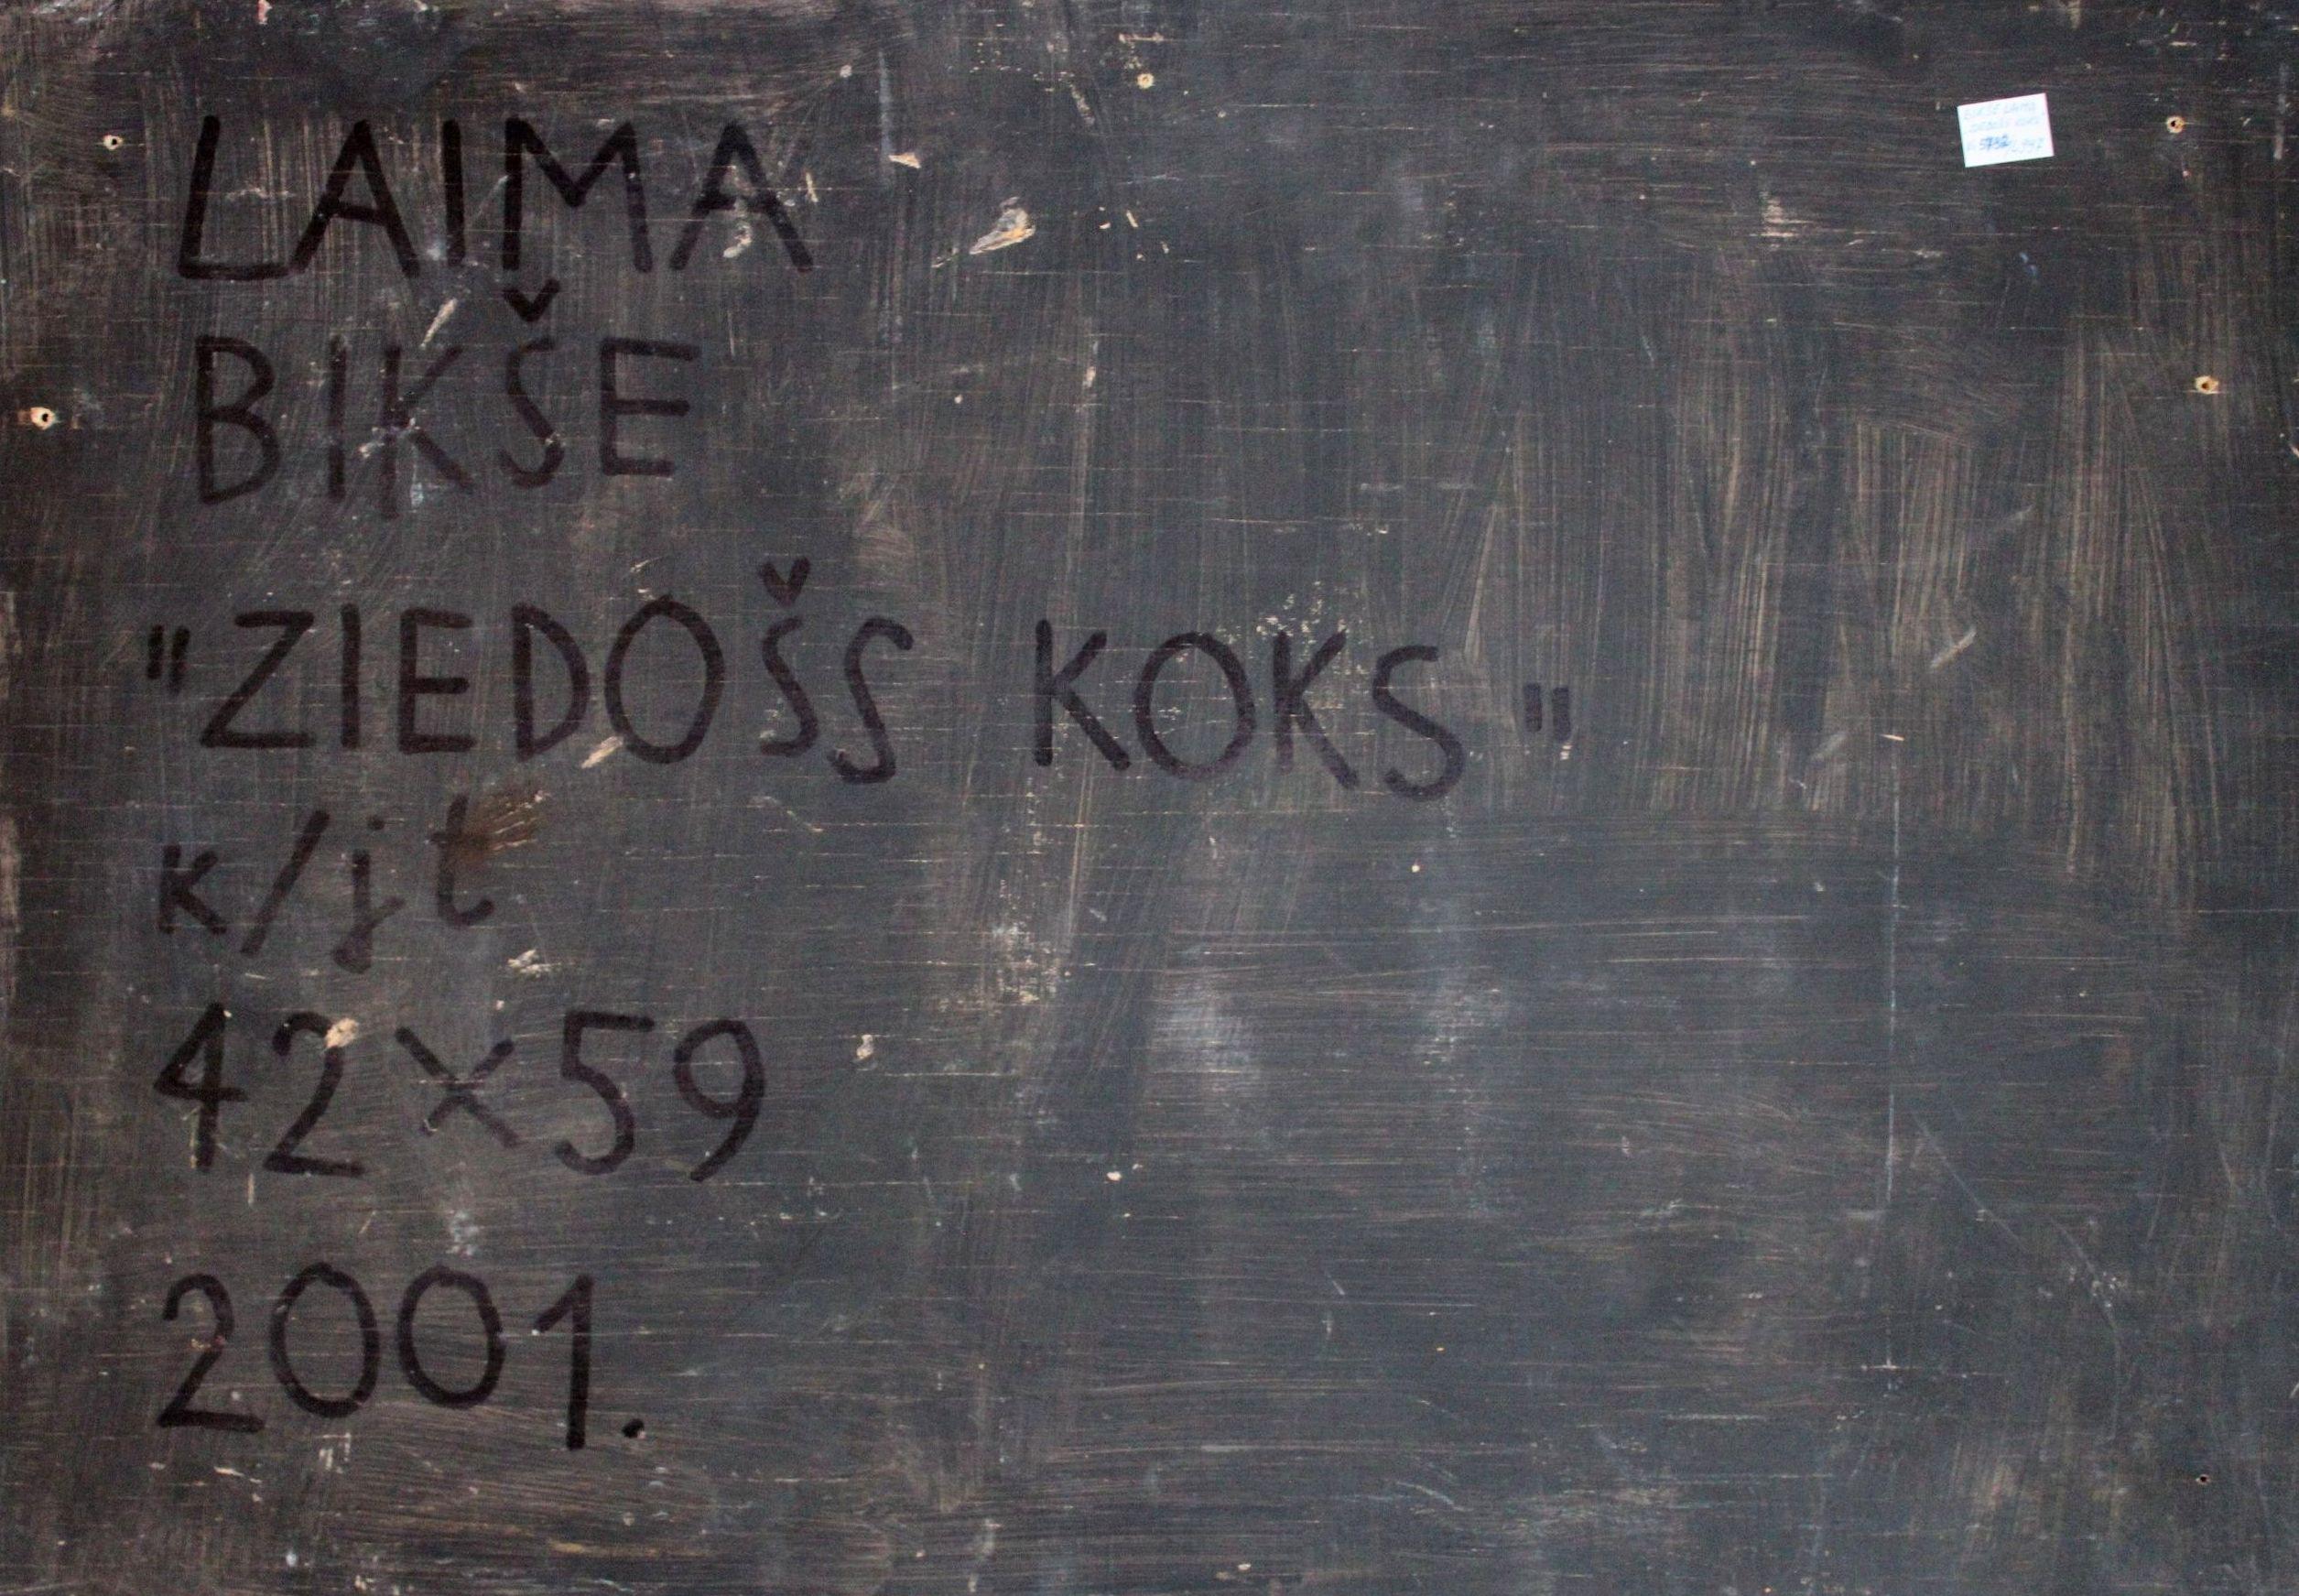 LAIMA
BIKŠE
"ZIEDOŠS KOKS"
k/jt
42×59
2001.